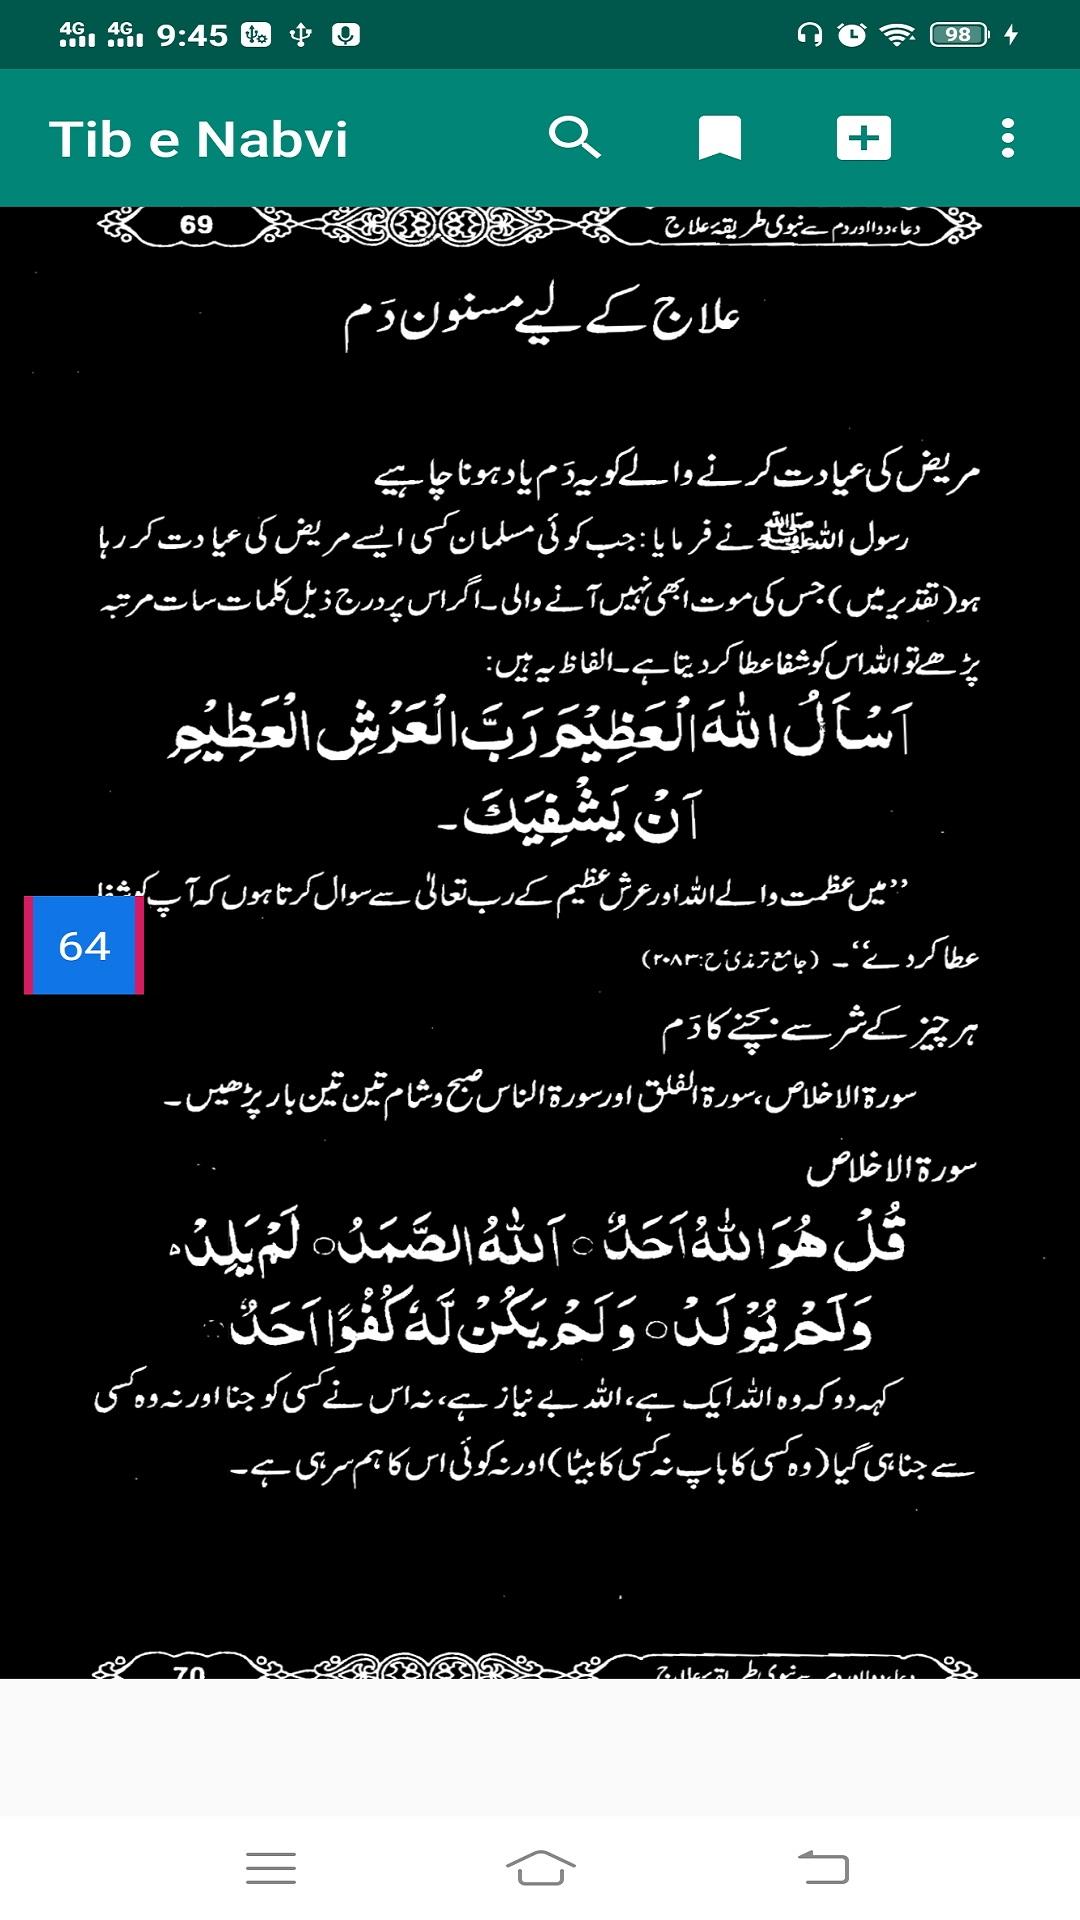 9:45
98
Tib e Nabvi
69
دعاء، دوا اور دم سے نبوی طریقۂ علاج
علاج کے لیے مسنون دَم
مریض کی عیادت کرنے والے کو یہ دَم یاد ہونا چاہیے
رسول اللہ ﷺ نے فرمایا: جب کوئی مسلمان کسی ایسے مریض کی عیادت کر رہا
ہو (تقدیر میں) جس کی موت ابھی نہیں آنے والی۔ اگر اس پر درج ذیل کلمات سات مرتبہ
پڑھے تو اللہ اس کو شفا عطا کر دیتا ہے۔ الفاظ یہ ہیں:
اَسْاَلُ اللّٰهَ الْعَظِيْمَ رَبَّ الْعَرْشِ الْعَظِيْمِ
اَنْ يَشْفِيَكَ۔
’’میں عظمت والے اللہ اور عرش عظیم کے رب تعالیٰ سے سوال کرتا ہوں کہ آپ کو شفا
64
عطا کر دے‘‘۔ (جامع ترمذی‘ ح: ۲۰۸۳)
ہر چیز کے شر سے بچنے کا دَم
سورۃ الاخلاص، سورۃ الفلق اور سورۃ الناس صبح و شام تین تین بار پڑھیں۔
سورۃ الاخلاص
قُلْ هُوَ اللّٰهُ اَحَدٌ ○ اَللّٰهُ الصَّمَدُ ○ لَمْ يَلِدْ ە
وَلَمْ يُوْلَدْ ○ وَلَمْ يَكُنْ لَّهٗ كُفُوًا اَحَدٌ ○
کہہ دو کہ وہ اللہ ایک ہے، اللہ بے نیاز ہے، نہ اس نے کسی کو جنا اور نہ وہ کسی
سے جنا ہی گیا (وہ کسی کا باپ نہ کسی کا بیٹا) اور نہ کوئی اس کا ہم سر ہی ہے۔
70
دعاء، دوا اور دم سے نبوی طریقۂ علاج